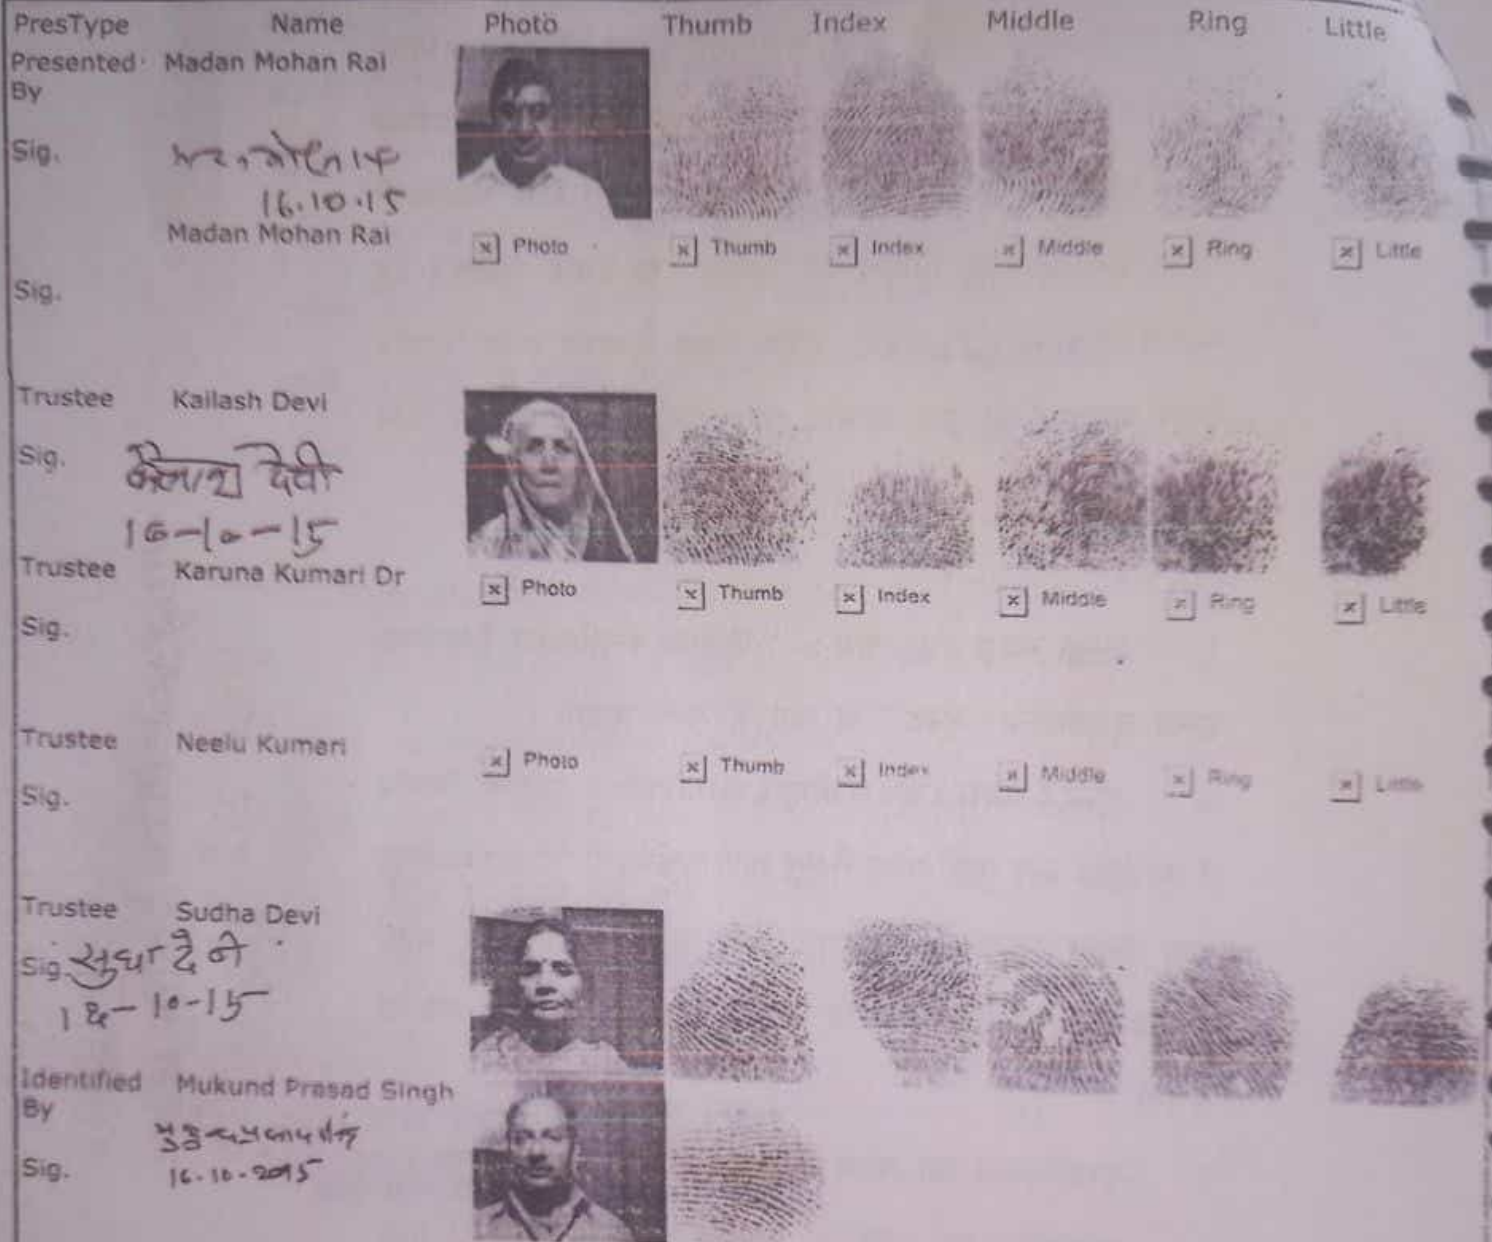 PresType Name Photo Thumb Index Middle Ring Little
Presented Madan Mohan Rai
By
Sig.
16.10.15
Madan Mohan Rai
Photo Thumb Index Middle Ring Little
Sig.
Trustee Kailash Devi
Sig. कैलाश देवी
16-10-15
Trustee Karuna Kumari Dr
Photo Thumb Index Middle Ring Little
Sig.
Trustee Neelu Kumari
Photo Thumb Index Middle Ring Little
Sig.
Trustee Sudha Devi
Sig. सुधा देवी
16-10-15
Identified Mukund Prasad Singh
By
Sig.
16.10.2015